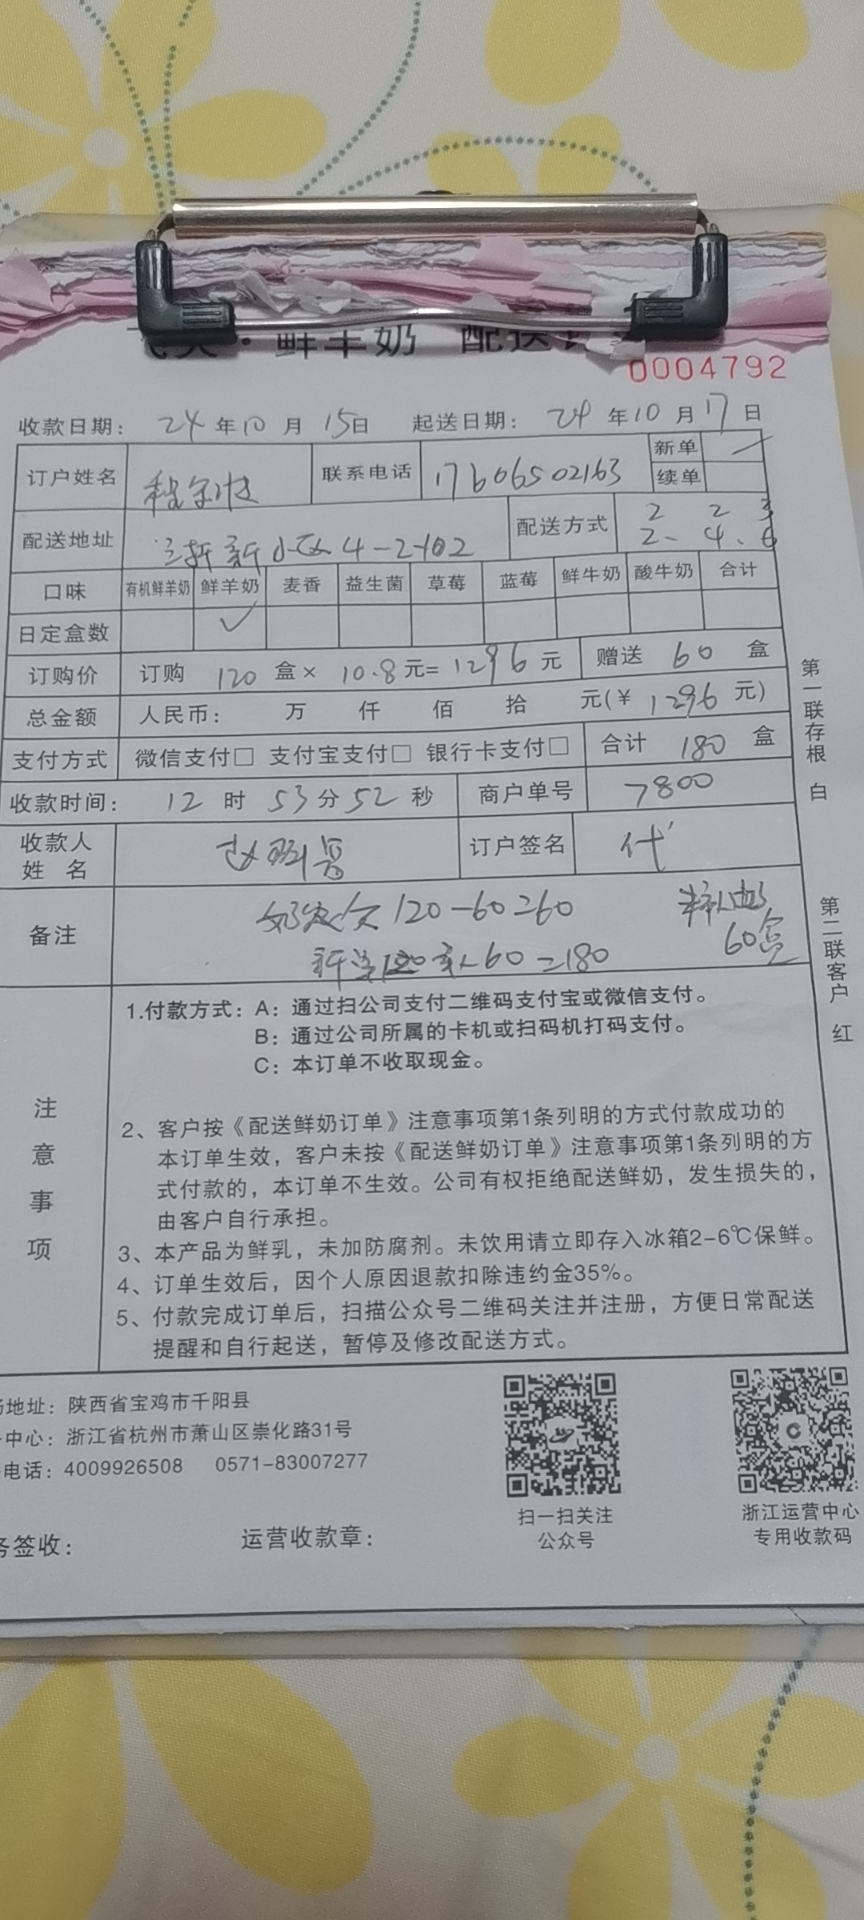 ·鲜羊奶 配送
0004792
收款日期: 24年10月15日 起送日期: 24年10月17日
订户姓名 联系电话 17606502163 新单
续单
配送地址 新小区4-2-102 配送方式 2 2 3
2、4、6
口味 有机鲜羊奶 鲜羊奶 麦香 益生菌 草莓 蓝莓 鲜牛奶 酸牛奶 合计
日定盒数 ✓
订购价 订购 120 盒× 10.8元= 1296 元 赠送 60 盒
总金额 人民币: 万 仟 佰 拾 元(¥ 1296 元)
支付方式 微信支付□ 支付宝支付□ 银行卡支付□ 合计 180 盒
收款时间: 12 时 53分52 秒 商户单号 7800
收款人
姓 名
订户签名 代
备注 120-60=60
60=180
60盒
注意事项
1.付款方式: A: 通过扫公司支付二维码支付宝或微信支付。
B: 通过公司所属的卡机或扫码机打码支付。
C: 本订单不收取现金。
2、客户按《配送鲜奶订单》注意事项第1条列明的方式付款成功的
本订单生效，客户未按《配送鲜奶订单》注意事项第1条列明的方
式付款的，本订单不生效。公司有权拒绝配送鲜奶，发生损失的，
由客户自行承担。
3、本产品为鲜乳，未加防腐剂。未饮用请立即存入冰箱2-6℃保鲜。
4、订单生效后，因个人原因退款扣除违约金35%。
5、付款完成订单后，扫描公众号二维码关注并注册，方便日常配送
提醒和自行起送，暂停及修改配送方式。
第一联存根 白
第二联客户 红
地址: 陕西省宝鸡市千阳县
中心: 浙江省杭州市萧山区崇化路31号
电话: 4009926508 0571-83007277
扫一扫关注
公众号
浙江运营中心
专用收款码
签收: 运营收款章: